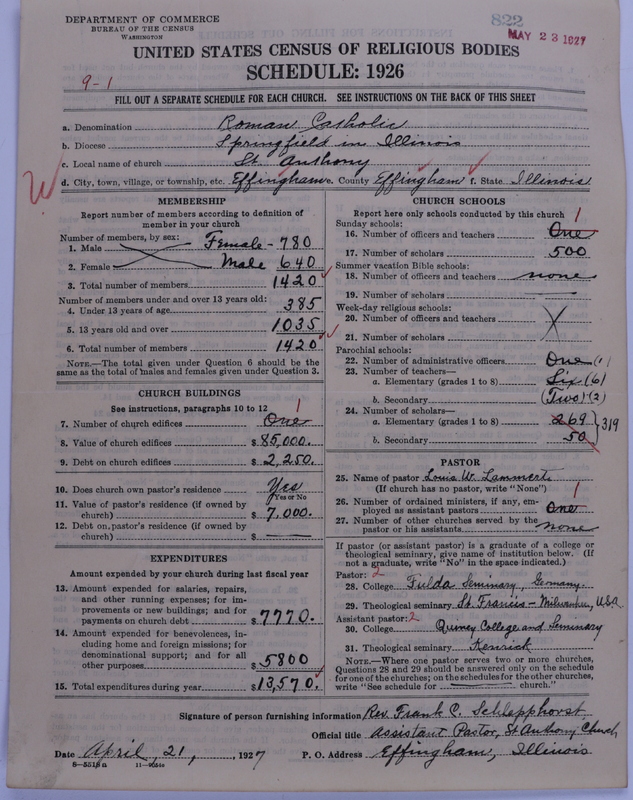 DEPARTMENT OF COMMERCE
BUREAU OF THE CENSUS
WASHINGTON
822
MAY 23 1927
UNITED STATES CENSUS OF RELIGIOUS BODIES
SCHEDULE: 1926
9-1
FILL OUT A SEPARATE SCHEDULE FOR EACH CHURCH. SEE INSTRUCTIONS ON THE BACK OF THIS SHEET
a. Denomination Roman Catholic
b. Diocese Springfield in Illinois
c. Local name of church St. Anthony
d. City, town, village, or township, etc. Effingham e. County Effingham f. State Illinois
MEMBERSHIP
Report number of members according to definition of
member in your church
Number of members, by sex:
1. Male Female - 780
2. Female Male 640
3. Total number of members 1420
Number of members under and over 13 years old:
4. Under 13 years of age 385
5. 13 years old and over 1035
6. Total number of members 1420
NOTE.—The total given under Question 6 should be the
same as the total of males and females given under Question 3.
CHURCH BUILDINGS
See instructions, paragraphs 10 to 12
7. Number of church edifices One 1
8. Value of church edifices $ 85,000.
9. Debt on church edifices $ 2,250.
10. Does church own pastor's residence Yes
Yes or No
11. Value of pastor's residence (if owned by
church) $ 7,000.
12. Debt on pastor's residence (if owned by
church) $ —
EXPENDITURES
Amount expended by your church during last fiscal year
13. Amount expended for salaries, repairs,
and other running expenses; for im-
provements or new buildings; and for
payments on church debt $ 7770.
14. Amount expended for benevolences, in-
cluding home and foreign missions; for
denominational support; and for all
other purposes $ 5800
15. Total expenditures during year $ 13,570.
CHURCH SCHOOLS
Report here only schools conducted by this church
Sunday schools: 1
16. Number of officers and teachers One
17. Number of scholars 500
Summer vacation Bible schools:
18. Number of officers and teachers none
19. Number of scholars —
Week-day religious schools:
20. Number of officers and teachers
21. Number of scholars
Parochial schools:
22. Number of administrative officers One (1)
23. Number of teachers—
a. Elementary (grades 1 to 8) Six (6)
b. Secondary (Two) (2)
24. Number of scholars—
a. Elementary (grades 1 to 8) 269
b. Secondary 50 } 319
PASTOR
25. Name of pastor Louis W. Lammert
(If church has no pastor, write "None")
26. Number of ordained ministers, if any, em-
ployed as assistant pastors One 1
27. Number of other churches served by the
pastor or his assistants none
If pastor (or assistant pastor) is a graduate of a college or
theological seminary, give name of institution below. (If
not a graduate, write "No" in the space indicated.)
Pastor: 2
28. College Fulda Seminary, Germany
29. Theological seminary St. Francis - Milwaukee, U.S.A.
Assistant pastor: 2
30. College Quincy College and Seminary
31. Theological seminary Kenrick
NOTE.—Where one pastor serves two or more churches,
Questions 28 and 29 should be answered only on the schedule
for one of the churches; on the schedules for the other churches,
write "See schedule for church."
Signature of person furnishing information Rev. Frank C. Schlepphorst
Official title Assistant Pastor, St Anthony Church
Date April 21, 1927 P. O. Address Effingham, Illinois
8-5518a 11-9054a